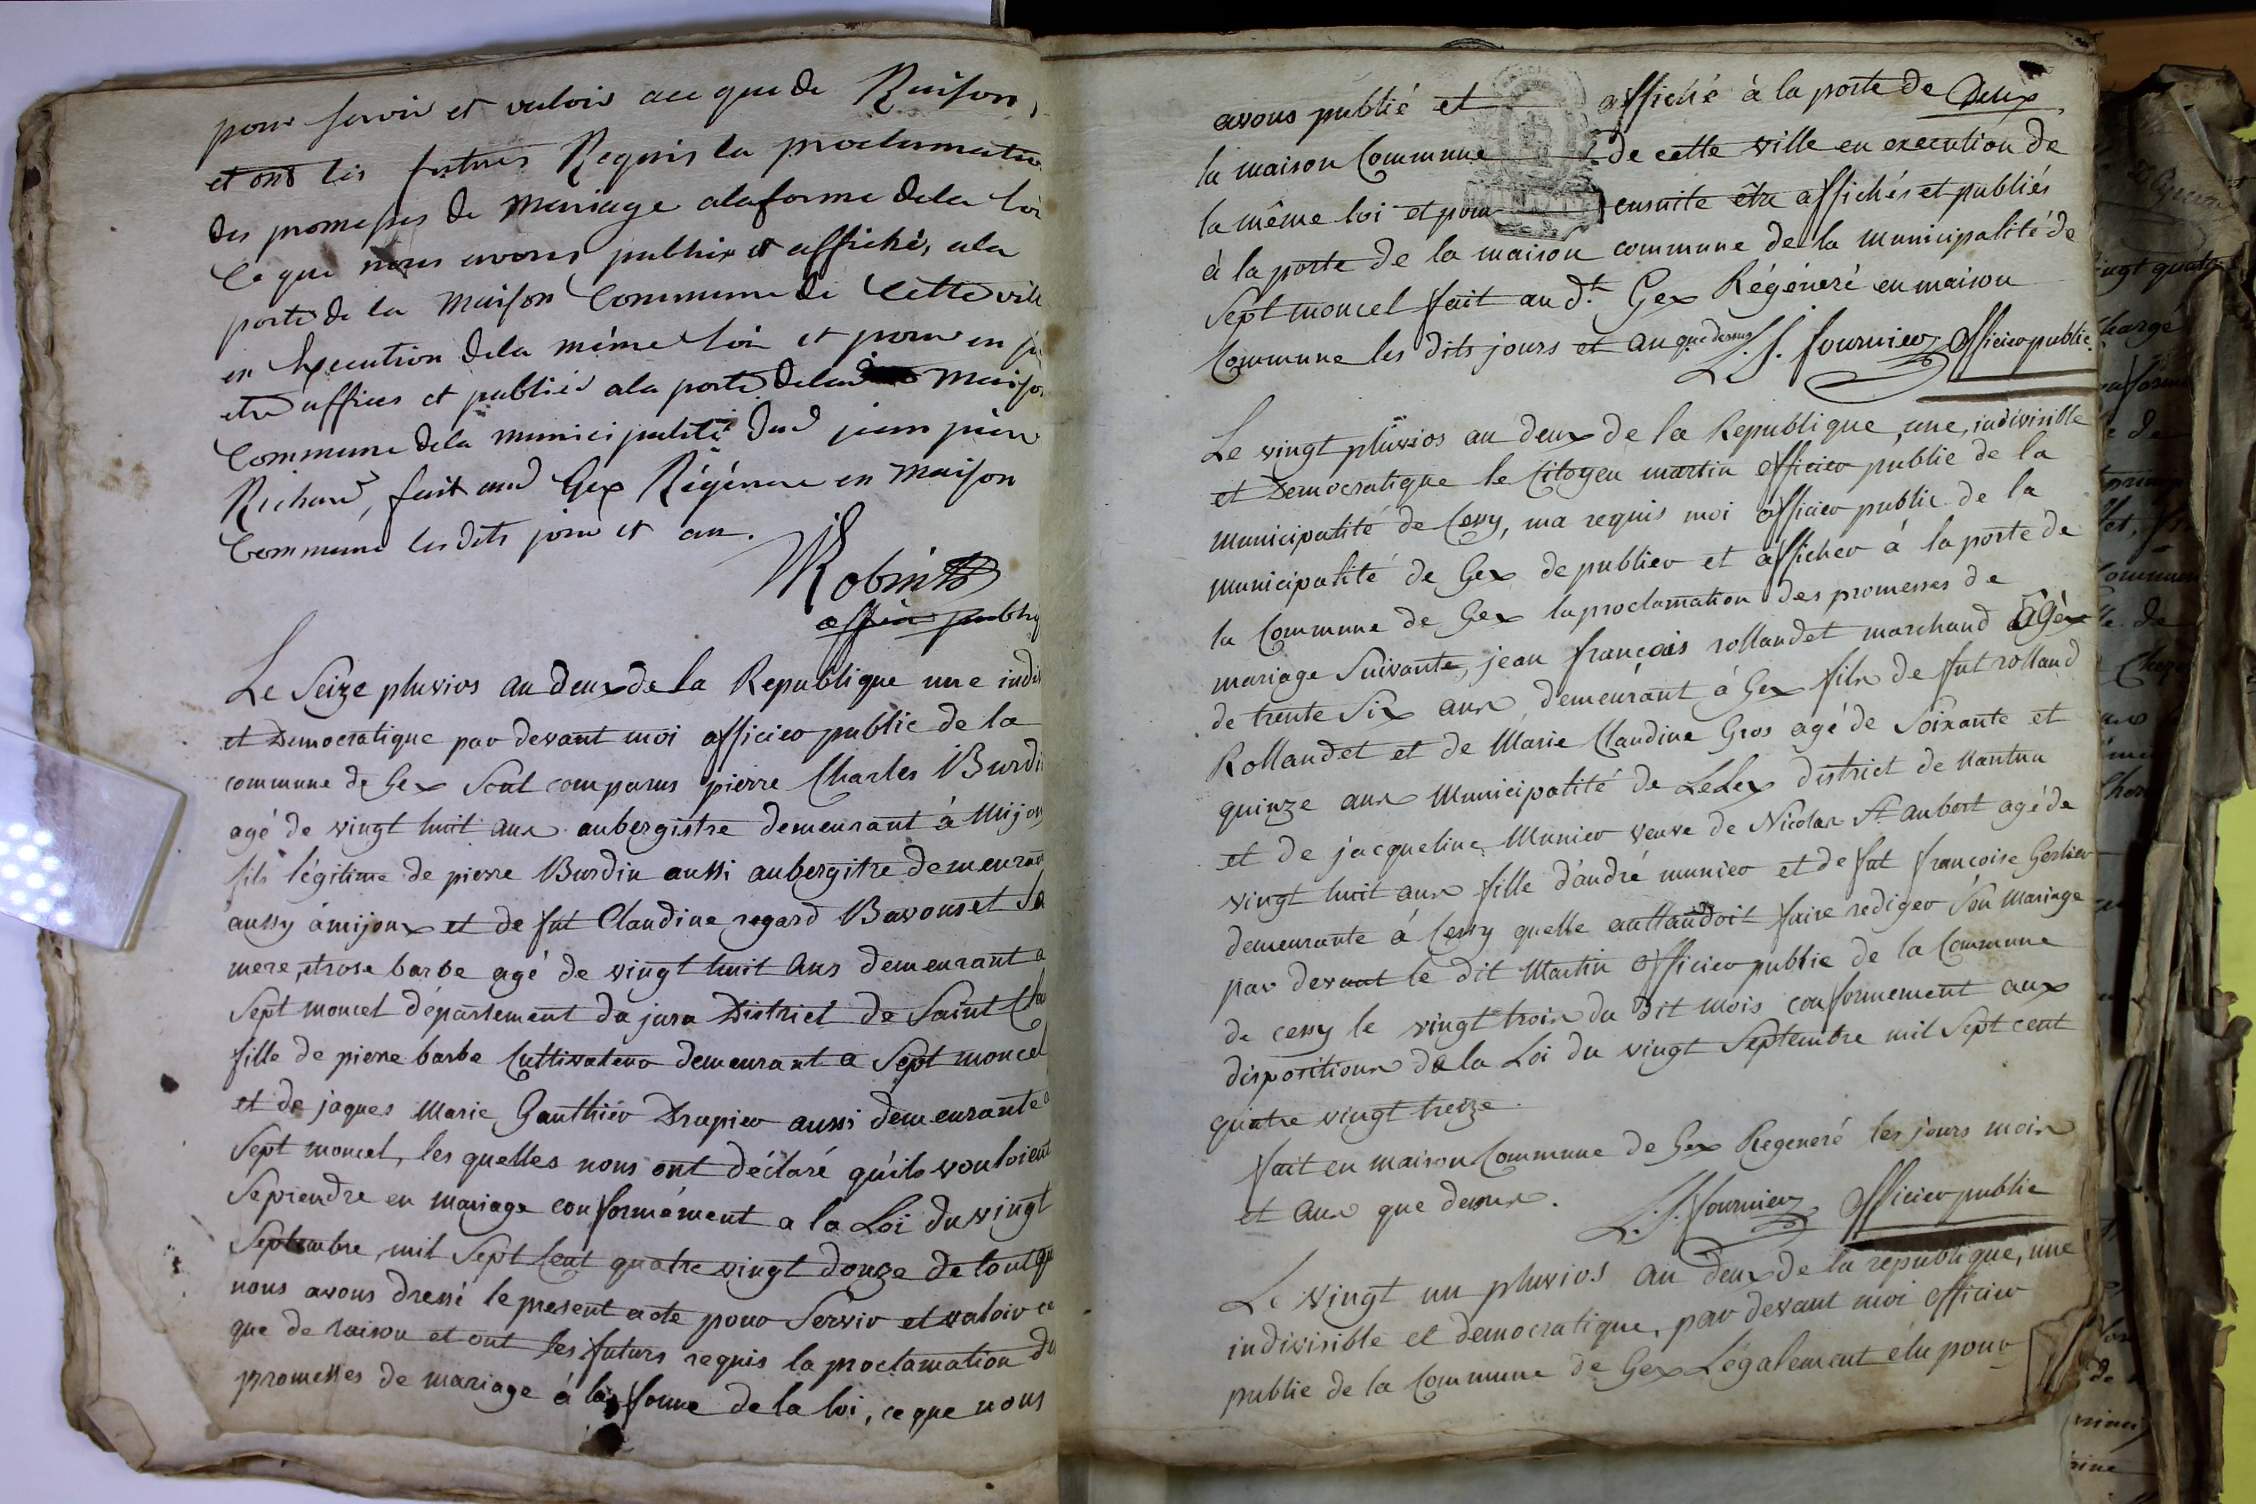 pour servir et valoir ace que de Raison,
et ont les futurs Requis la proclamation
des promesses de mariage alaforme dela loi
Ce que nous avons publier et affiché, ala
porte de la Maison Commune de Cette ville
en Execution dela même loi et pour en
etre affices et publiér ala porte delad Maison
Commune dela municipalité dud jean pierre
Richard, fait aud Gex Régénéré en Maison
Commune les dits jour et an.
Robin
officier public
Le Seize pluvios an deux de la Republique une indi
et Democratique par devant moi officier public de la
commune de Gex Sont comparus pierre Charles Burdin
agé de vingt huit ans aubergistre demeurant à Mijoux
fils légitime de pierre Burdin aussi aubergitre demeurant
aussy àmijoux et de fut Claudine regard Bavouset Sa
mere, et rose barbe agé de vingt huit ans demeurant a
Sept moncel département du jura District de Saint Cla
fille de pierre barbe Cultivateur demeurant a Sept moncel
et de jaques Marie Gauthiér Drapier aussi demeurante a
Sept moncel, les quelles nous ont déclaré qu'ils vouloient
Seprendre en mariage conformément a la Loi du vingt
Septembre, mil Sept Cent quatre vingt douze de tout que
nous avons dressé le present acte pour Servir et valoir ce
que de raison et ont les futurs requis la proclamation de
promesses de mariage à la forme de la loi, ce que nous
avons publié et affiché à la porte de Deux
la maison Commune de cette ville en execution de
la même loi et pour ensuite être affichés et publiés
à la porte de la maison commune de la municipalité de
Sept moncel fait au d.t Gex Régéneré en maison
Commune les dits jours et an que dessus L. J. fournier officier public.
Le vingt pluvios an deux de la Republique, une, indivisible
et Democratique le Citoyen martin officier public de la
municipalité de Cessy, ma requis moi officier public de la
municipalité de Gex de publier et afficher à la porte de
la Commune de Gex la proclamation des promesses de
mariage Suivante, jean françois rollandet marchand à Gex
de trente Six ans demeurant à Gex fils de fut rolland
Rollandet et de Marie Claudine Gros agé de Soixante et
quinze ans Municipalité de LeLex district de Nantua
et de jacqueline Munier veuve de Nicolas St aubert agé de
vingt huit ans fille d'andré munier et de fut françoise Gerlier
demeurante à Cessy quelle entandoit faire rediger Son Mariage
par devant le dit Martin officier public de la Commune
de cessy le vingt trois du dit mois conformement aux
dispositions de la Loi du vingt Septembre mil Sept cent
quatre vingt treize.
fait en maison Commune de Gex Regeneré les jours mois
et ans que dessus. L. J. fournier officier public
Le vingt un pluvios an deux de la republique, une
indivisible et democratique, par devant moi officier
public de la Commune de Gex Légalement élu pour